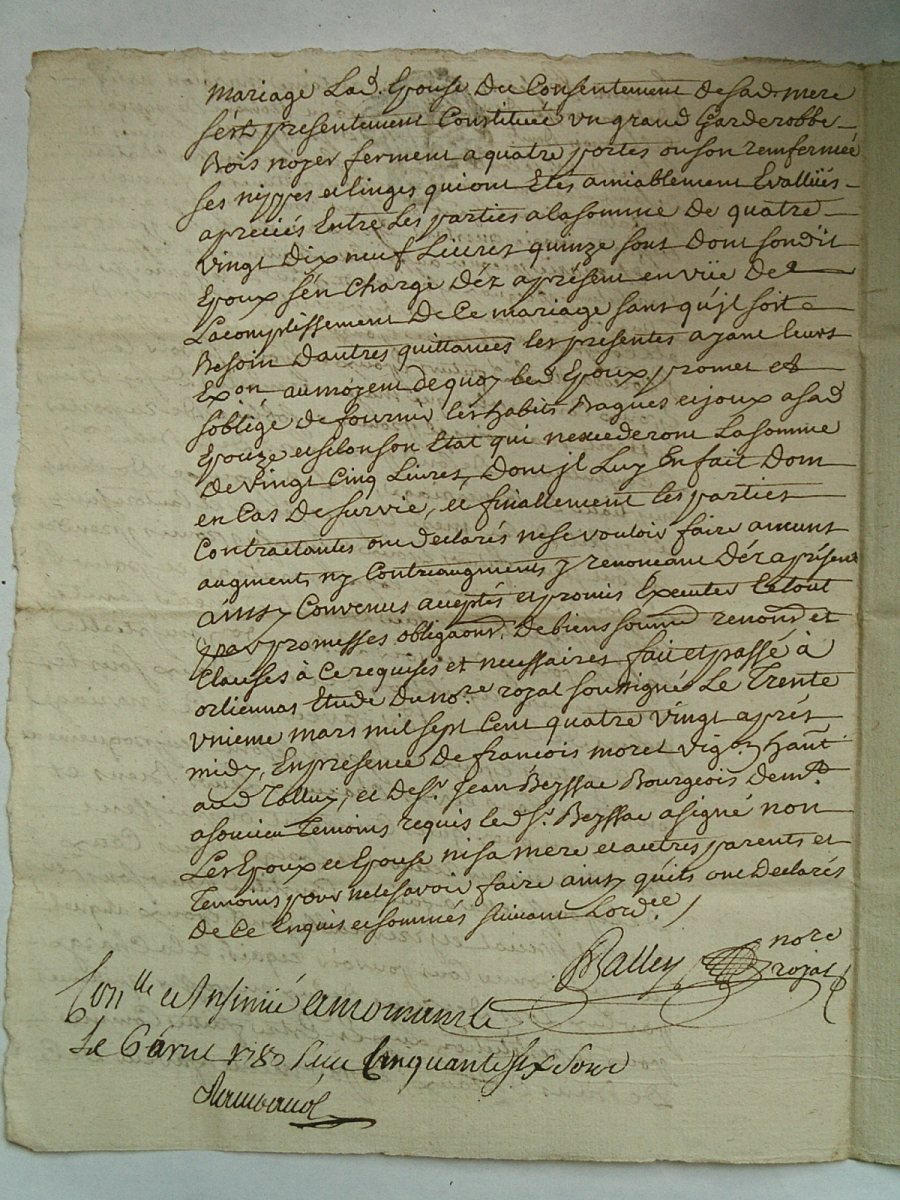 mariage Lad. Epouse Du Consentement de sad. mere
sést presentement Constituée un grand Garderobbe
Bois noyer ferment a quatre portes ou son remfermée
ses nippes et linges qui ont Etés amiablement Evallüés
apreciés Entre Les parties a la somme de quatre
vingt dix neuf Livres quinze sous dont son dit
Epoux sén Charge déz aprésent en vüe de
Lacomplissement De Ce mariage sans qu'jl soit
Besoin Dautres quittances les presentes ayant leurs
Exon, au moyent de quoy led Epoux promet et
soblige de fournir les habits Bagues et joux a sad
Epouze et selon son Etat qui nexcederont La somme
de vingt Cinq Livres, Dont jl Luy En fait Dom
en Cas De survie, et finallement les parties
Contractantes ont declarés ne se vouloir faire aucuns
augments ny Contreaugments y renoncant Déz aprésent
ainsy Convenus aceptés et promis Executer Le tout
par promesses obligaons. De biens soumd renond et
Clauses à Ce requises et necessaires fait et passé à
orliennas Etude du nore. royal soussigné Le Trente
vnieme mars mil sept Cent quatre vingt aprés
midy, En presence De francois moret vig.on hant.
aud Tolluy, et De Sr. Jean Beyssac Bourgeois Demt.
a soucieu Temoins requis led Sr. Beyssac a signé non
Les Epoux et Epouse ni sa mere et autres parents et
Temoins pour ne le savoir faire ainsy quils ont Declarés
de Ce Enquis et sommés suivant Lordce.
Balley nore
royal
Conlle et Insinüé a mornant le
Le 6 avril 1780 Reçu Cinquante six sous